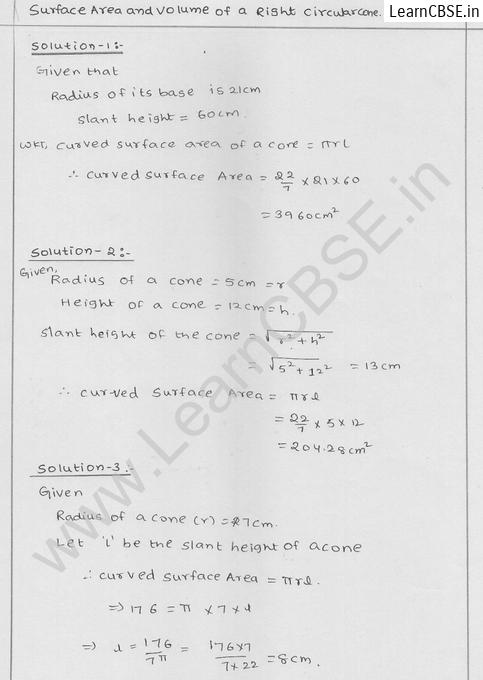 Surface Area and Volume of a Right Circular Cone.
LearnCBSE.in
Solution-1:-
Given that
Radius of its base is 21cm
Slant height = 60cm.
WKT, curved surface area of a cone = πrl
∴ curved surface Area = 22/7 × 21 × 60
= 3960cm²
Solution-2:-
Given,
Radius of a cone = 5cm = r
Height of a cone = 12cm = h.
Slant height of the cone = √r² + h²
= √5² + 12² = 13cm
∴ curved Surface Area = πrl
= 22/7 × 5 × 12
= 204.28cm²
Solution-3:-
Given
Radius of a cone (r) = 7cm.
Let 'l' be the slant height of a cone
∴ curved surface Area = πrl.
⇒ 176 = π × 7 × l
⇒ l = 176/7π = 176×7/7×22 = 8cm.
www.LearnCBSE.in